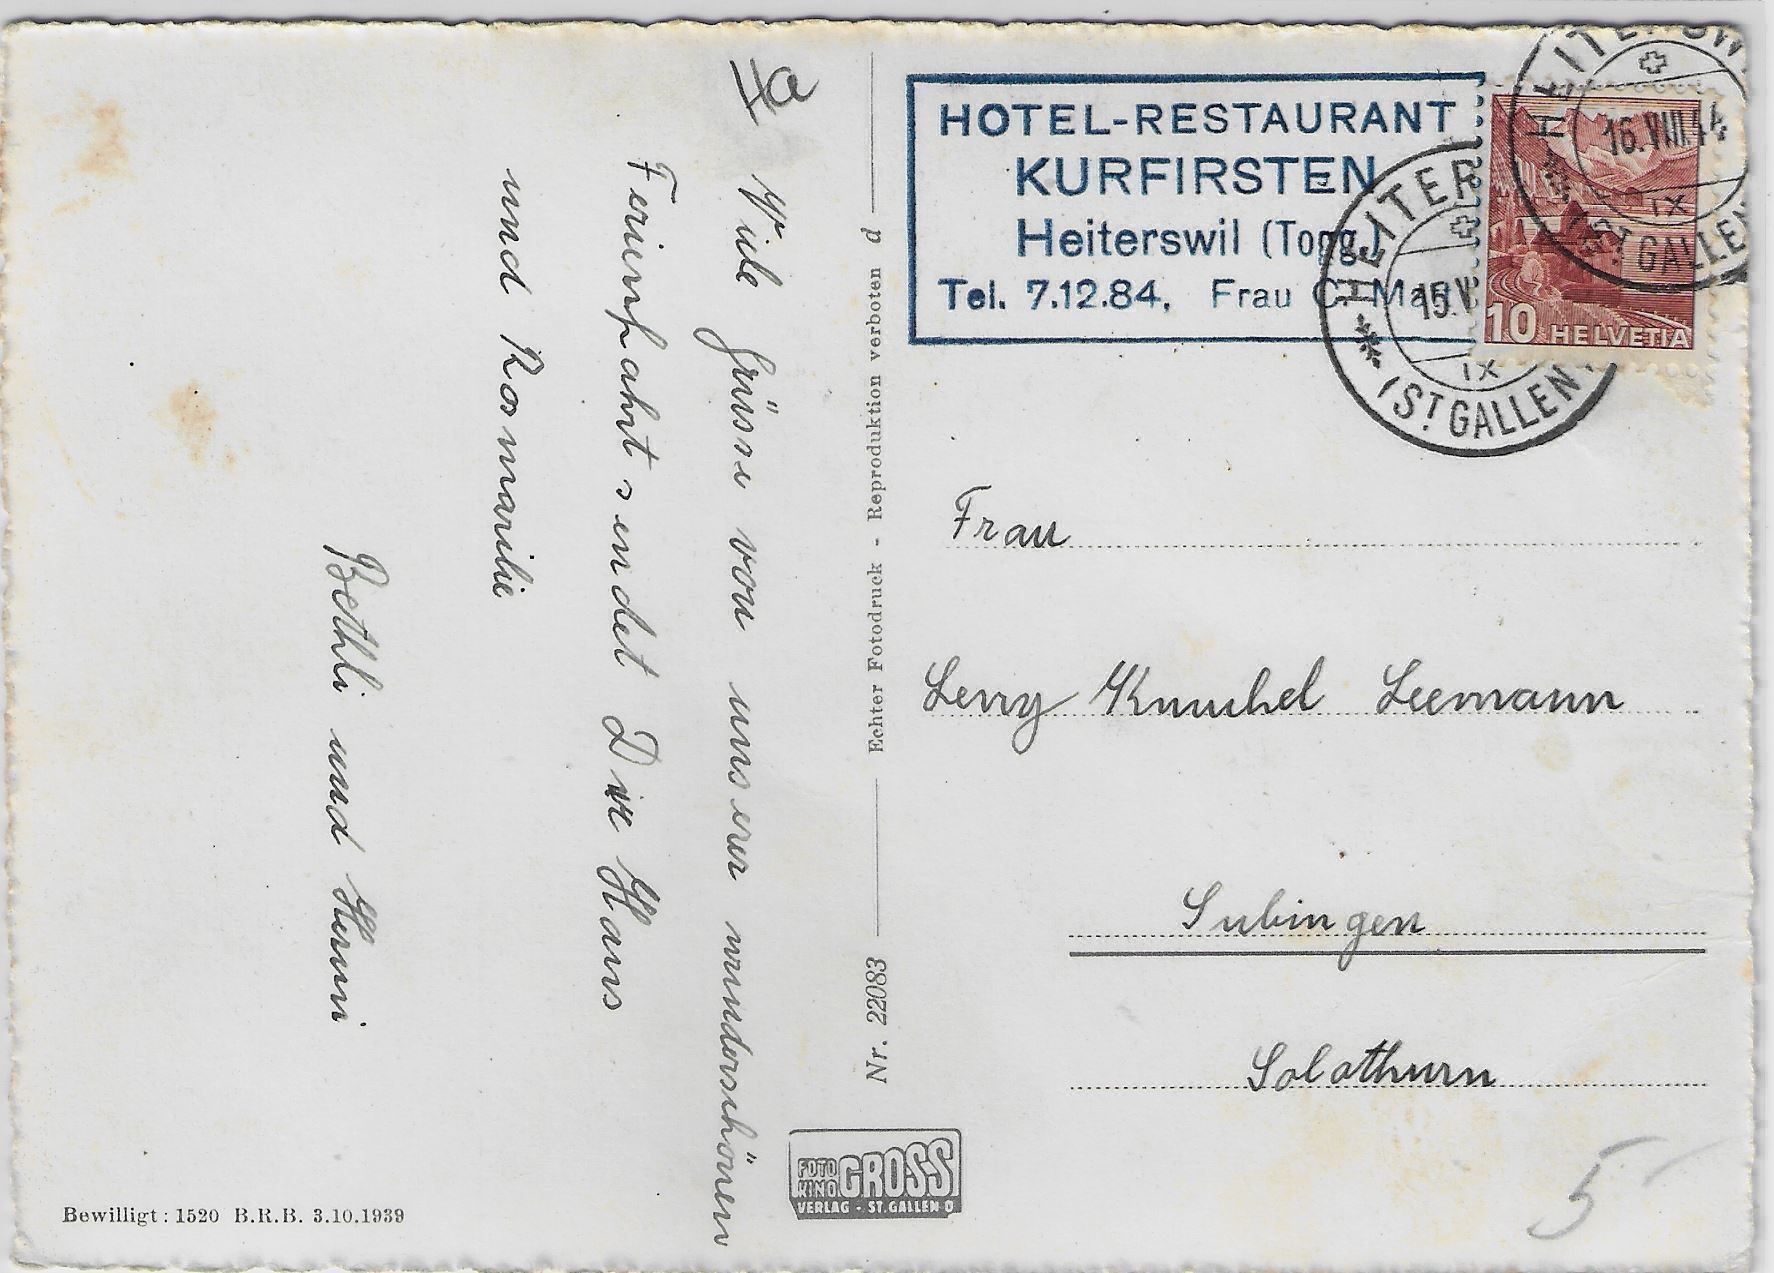 Ha
Viele Grüsse von unserer wunderschönen
Ferienfahrt sendet Dir Hans
und Rosmarilie
Bethli und Henni
Bewilligt: 1520 B.R.B. 3.10.1939
Nr. 22083 Echter Fotodruck - Reproduktion verboten d
FOTO KINO GROSS
VERLAG - ST. GALLEN O
HOTEL-RESTAURANT
KURFIRSTEN
Heiterswil (Togg.)
Tel. 7.12.84, Frau C.
HEITERSW
16.VIII.44
IX
(ST. GALLEN
HEITER
15.V
IX
(ST. GALLEN)
10 HELVETIA
Frau
Leny Knuchel Leemann
Subingen
Solothurn
5.-